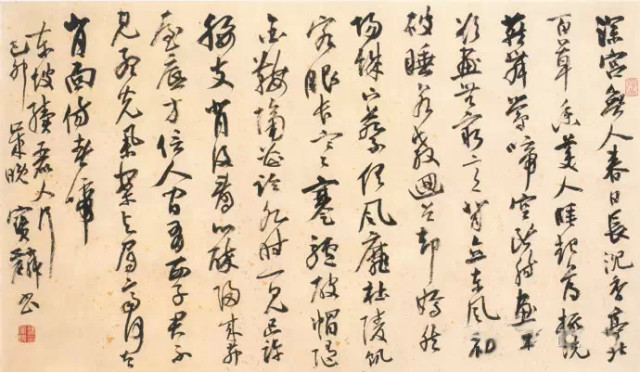 深宮無人春日長沉香亭北
百花香美人睡起薄梳洗
燕舞鶯啼空斷腸畫工
欲畫無窮意背立東風初
破睡若教迴首却嫣然
陽城下蔡俱風靡杜陵飢
客眼長寒蹇驢破帽隨
金鞍隔花臨水時一見只許
腰支背後看心醉歸來茅
屋底方信人間有西子君不
見孟光舉案與眉齊何曾
背面傷春啼
東坡續麗人行
己卯歲晚寶麟書